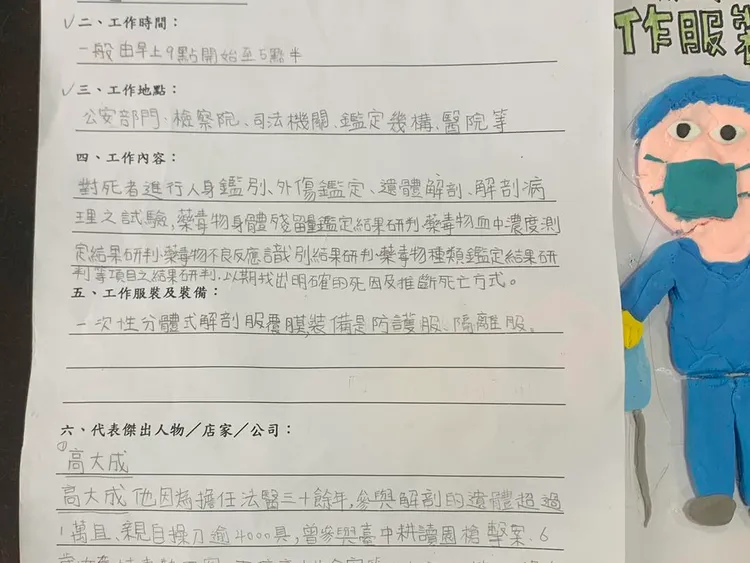 ✓二、工作時間：
一般由早上9點開始至5點半
✓三、工作地點：
公安部門、檢察院、司法機關、鑑定幾構、醫院等
四、工作內容：
對死者進行人身鑑別、外傷鑑定、遺體解剖、解剖病
理之試驗，藥毒物身體殘留量鑑定結果研判、藥毒物血中濃度測
定結果研判、藥毒物不良反應識別結果研判、藥毒物種類鑑定結果研
判等項目之結果研判，以期找出明確的死因及推斷死亡方式。
五、工作服裝及裝備：
一次性分體式解剖服覆膜，裝備是防護服、隔離服。
六、代表傑出人物／店家／公司：
①
高大成
高大成他因為擔任法醫三十餘年，參與解剖的遺體超過
1萬具、親自操刀逾4000具，曾參與臺中耕讀園槍擊案、6
工作服裝